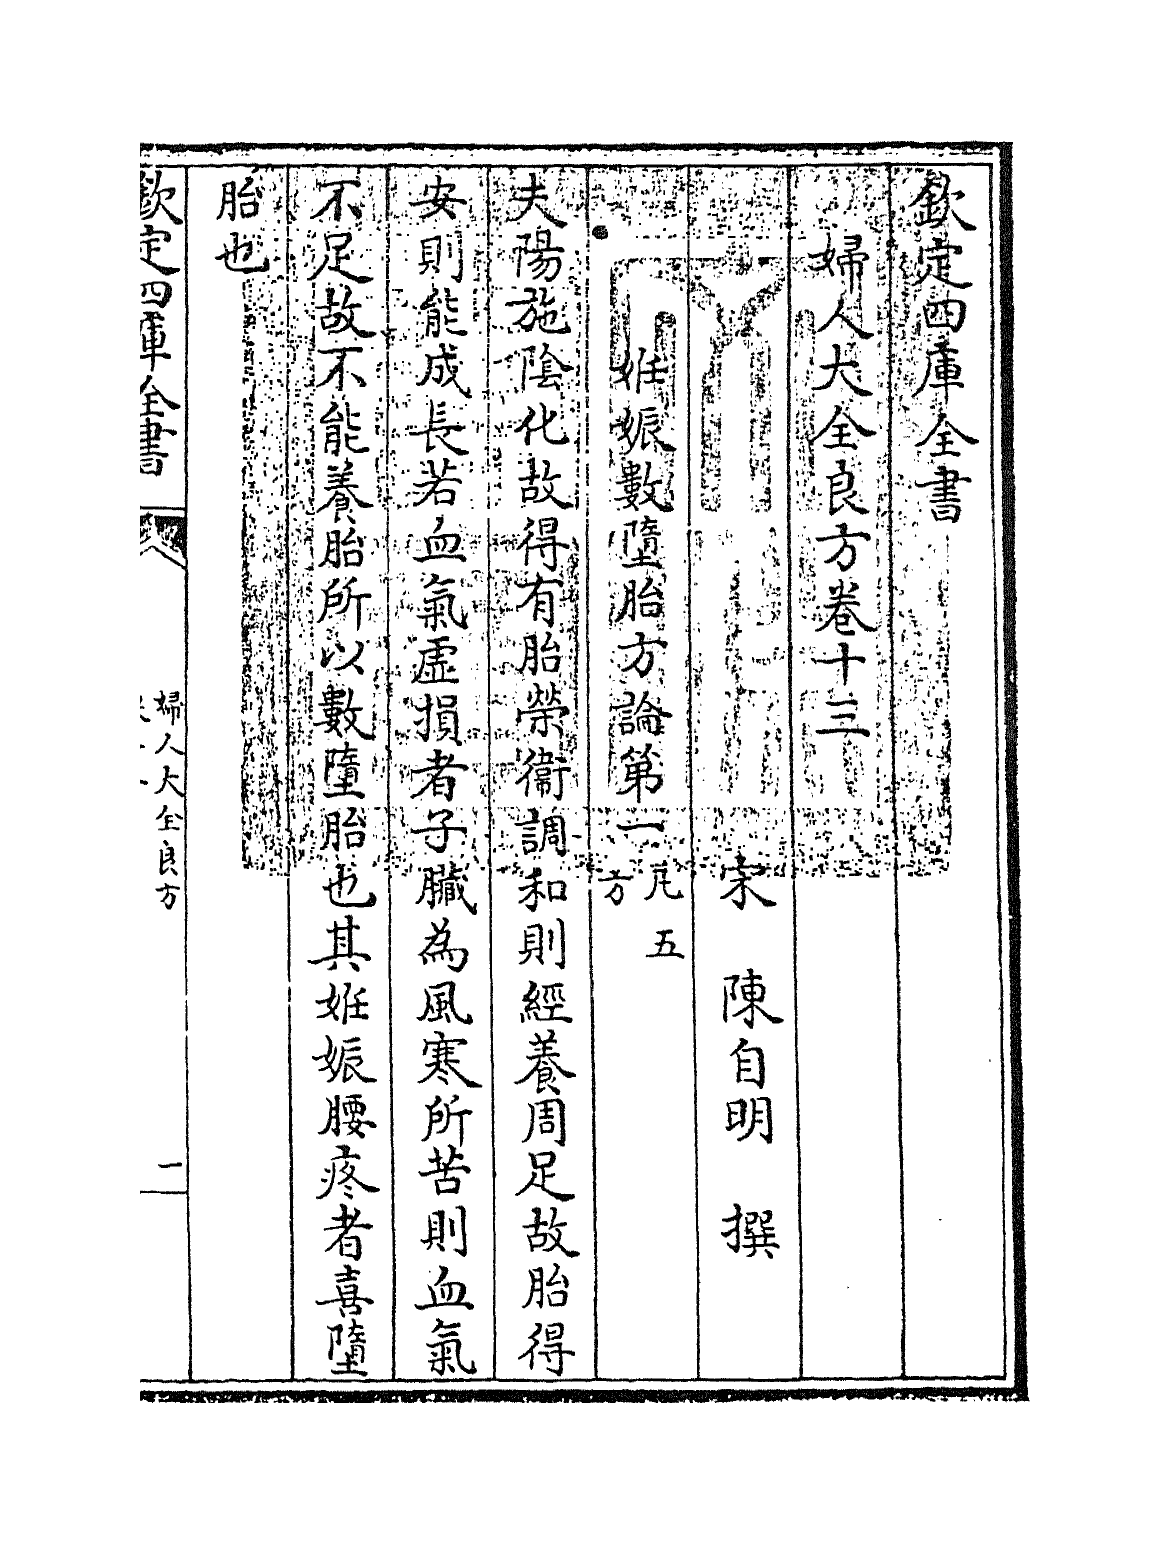 欽定四庫全書
婦人大全良方卷十三
宋 陳自明 撰
姙娠數墮胎方論第一凡五方
夫陽施陰化故得有胎榮衞調和則經養周足故胎得
安則能成長若血氣虛損者子臟為風寒所苦則血氣
不足故不能養胎所以數墮胎也其姙娠腰疼者喜墮
胎也
欽定四庫全書
婦人大全良方
一